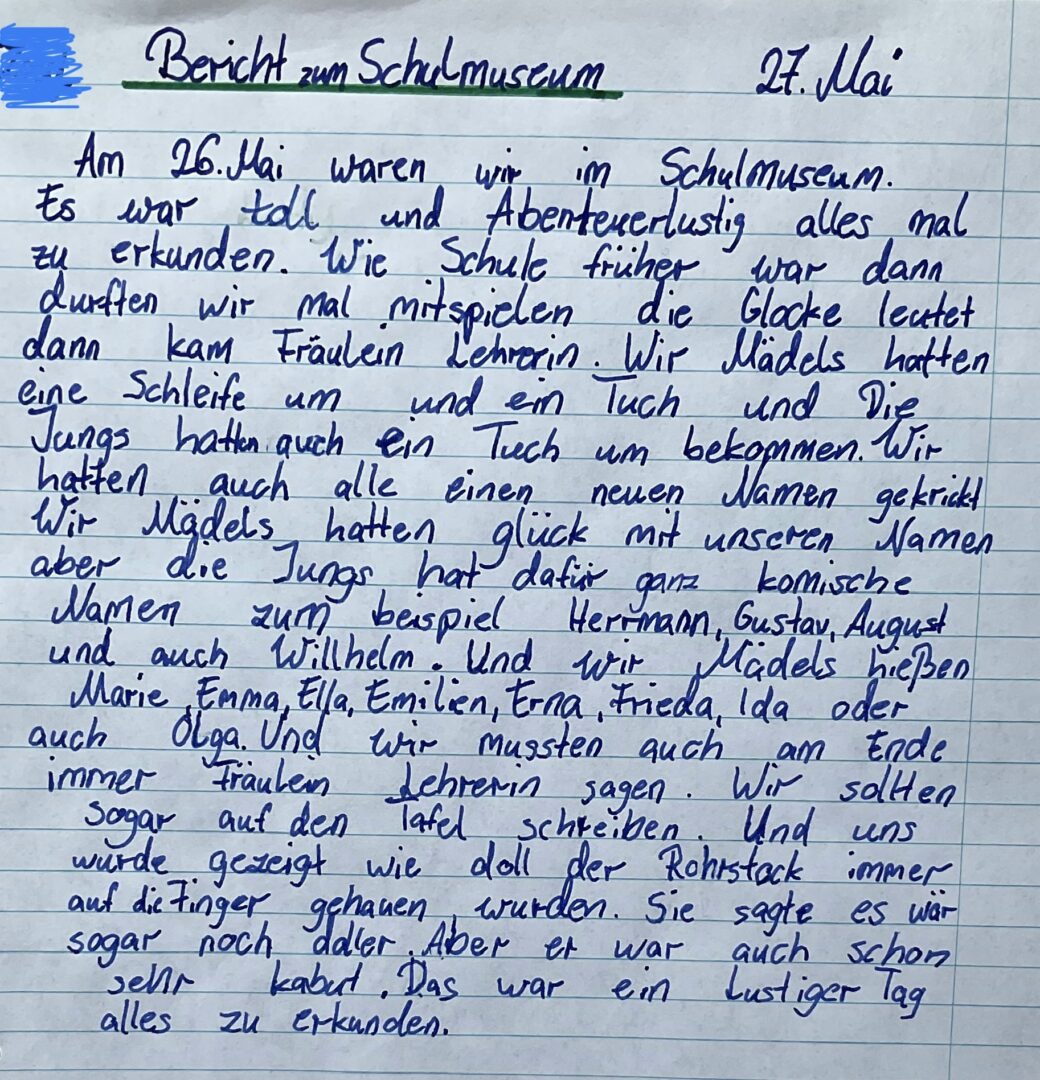 Bericht zum Schulmuseum 27. Mai
Am 26. Mai waren wir im Schulmuseum.
Es war toll und Abenteuerlustig alles mal
zu erkunden. Wie Schule früher war dann
durften wir mal mitspielen die Glocke leutet
dann kam Fräulein Lehrerin. Wir Mädels hatten
eine Schleife um und ein Tuch und Die
Jungs hatten auch ein Tuch um bekommen. Wir
hatten auch alle einen neuen Namen gekrickt
Wir Mädels hatten glück mit unseren Namen
aber die Jungs hat dafür ganz komische
Namen zum beispiel Herrmann, Gustav, August
und auch Willhelm. Und wir Mädels hießen
Marie, Emma, Ella, Emilien, Erna, Frieda, Ida oder
auch Olga. Und wir mussten auch am Ende
immer Fräulein Lehrerin sagen. Wir sollten
sogar auf den Tafel schreiben. Und uns
wurde gezeigt wie doll der Rohrstock immer
auf die Finger gehauen, wurden. Sie sagte es wär
sogar noch doller. Aber er war auch schon
sehr kabut. Das war ein Lustiger Tag
alles zu erkunden.